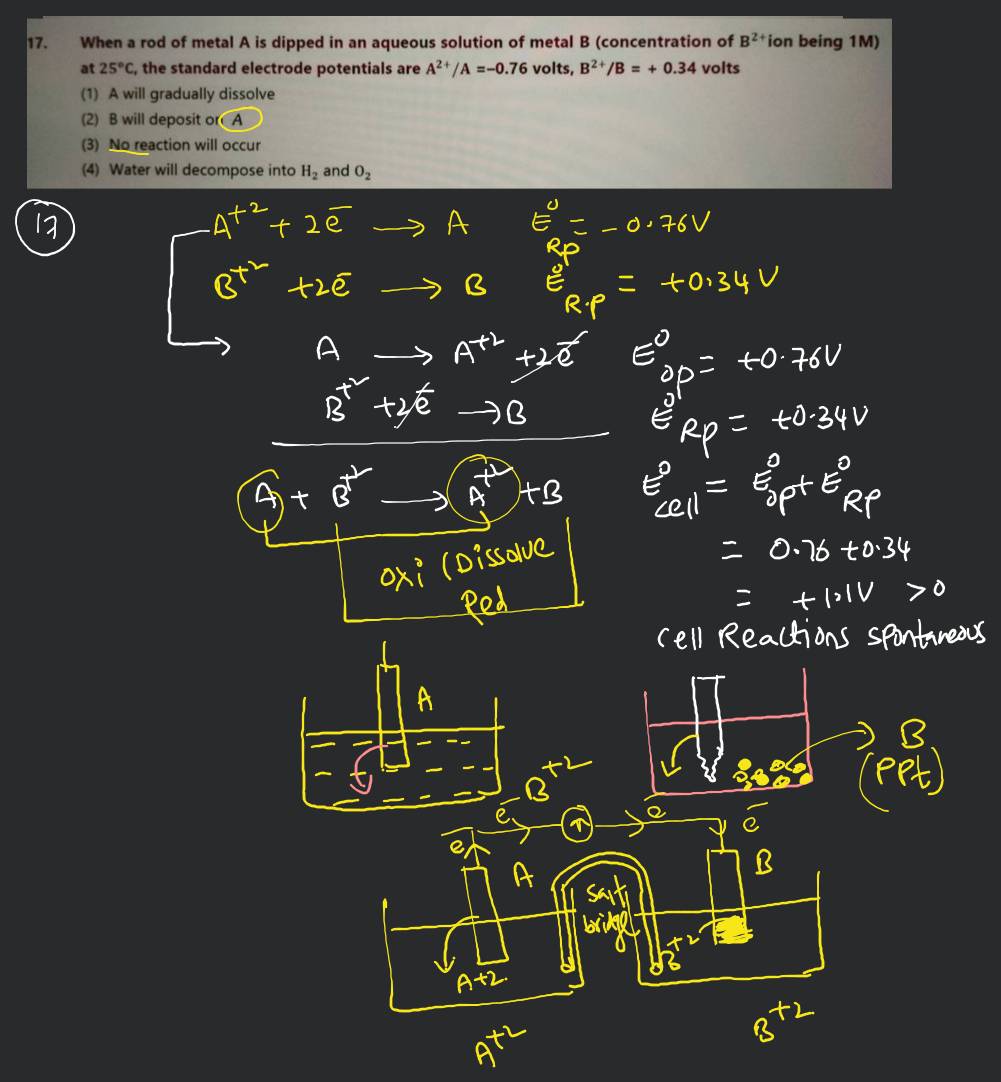 17. When a rod of metal A is dipped in an aqueous solution of metal B (concentration of B²⁺ion being 1M)
at 25°C, the standard electrode potentials are A²⁺/A =–0.76 volts, B²⁺/B = + 0.34 volts
(1) A will gradually dissolve
(2) B will deposit on A
(3) No reaction will occur
(4) Water will decompose into H₂ and O₂
17
A⁺² + 2e⁻ → A E°Rp = -0.76V
B⁺² +2e⁻ → B E°R.p = +0.34V
A → A⁺² +2e⁻ E°op = +0.76V
B⁺² +2e⁻ → B E°Rp = +0.34V
A + B⁺² → A⁺² + B E°cell = E°op + E°RP
= 0.76 +0.34
oxi (Dissolve
Red
= +1.1V >0
cell Reactions spontaneous
A
B
(PPt)
B⁺²
e⁻ e⁻ e⁻
e⁻
A B
Salt
bridge
B⁺²
A+2
A⁺² B⁺²